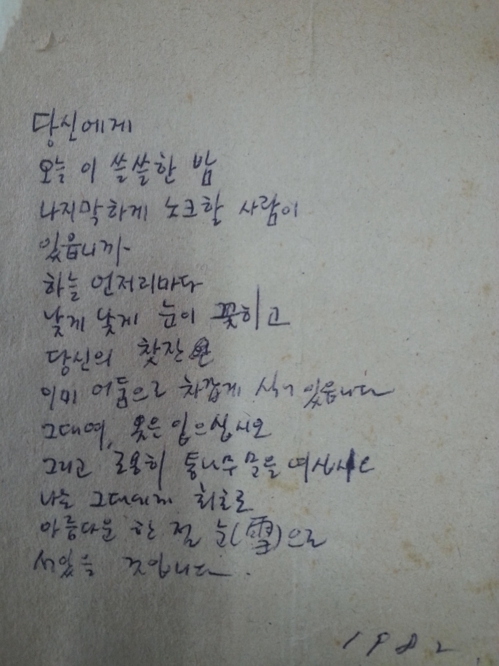 당신에게
오늘 이 쓸쓸한 밤
나지막하게 노크할 사람이
있읍니까
하늘 언저리마다
낮게 낮게 눈이 꽂히고
당신의 찻잔은
이미 어둠으로 차갑게 식어 있읍니다
그대여, 옷은 입으십시오
그리고 조용히 통나무 문을 여십시오
나는 그대에게 최초로
아름다운 한 점 눈(雪)으로
서있을 것입니다.
1982